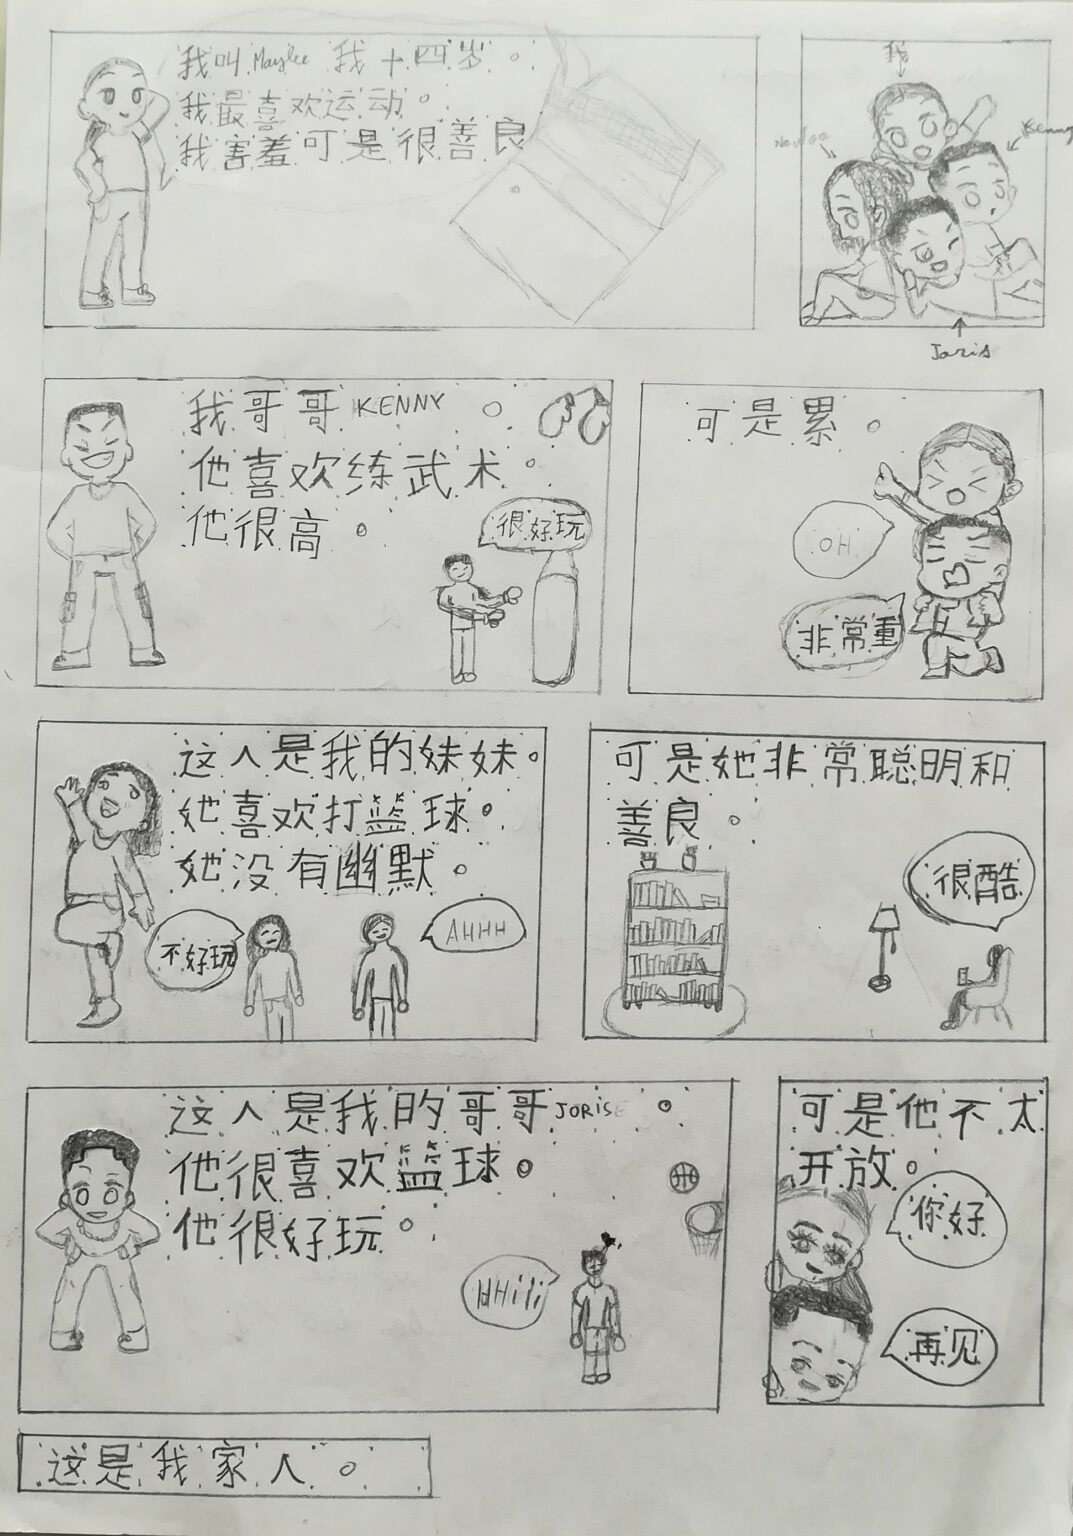 我叫 Maylee 我十四岁。
我最喜欢运动。
我害羞可是很善良
我
Kenny
Joris
我哥哥 KENNY 。
他喜欢练武术。
他很高。
很好玩
可是累。
OH
非常重
这人是我的妹妹。
她喜欢打篮球。
她没有幽默。
不好玩
AHHH
可是她非常聪明和
善良。
很酷
这人是我的哥哥 JORiS 。
他很喜欢篮球。
他很好玩。
HHiii
可是他不太
开放。
你好
再见
这是我家人。